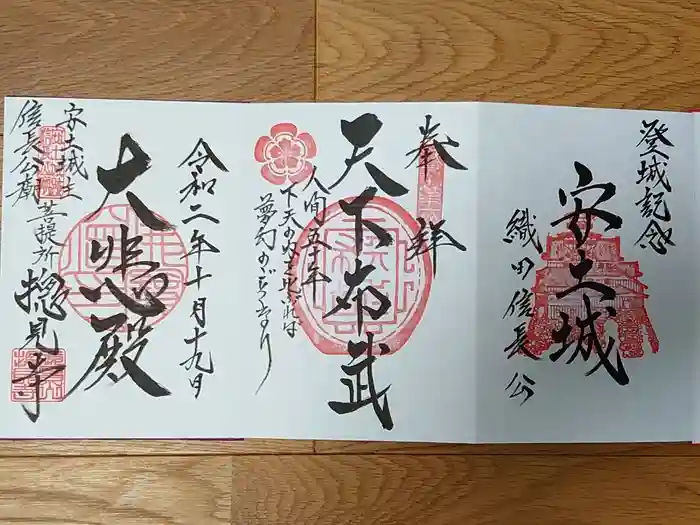 登城記念
安土城
織田信長公
奉拝
天下布武
人間五十年
下天の内を比ぶれば
夢幻のごとくなり
令和二年十月十九日
大悲殿
安土城主
信長公蔵
菩提所
摠見寺